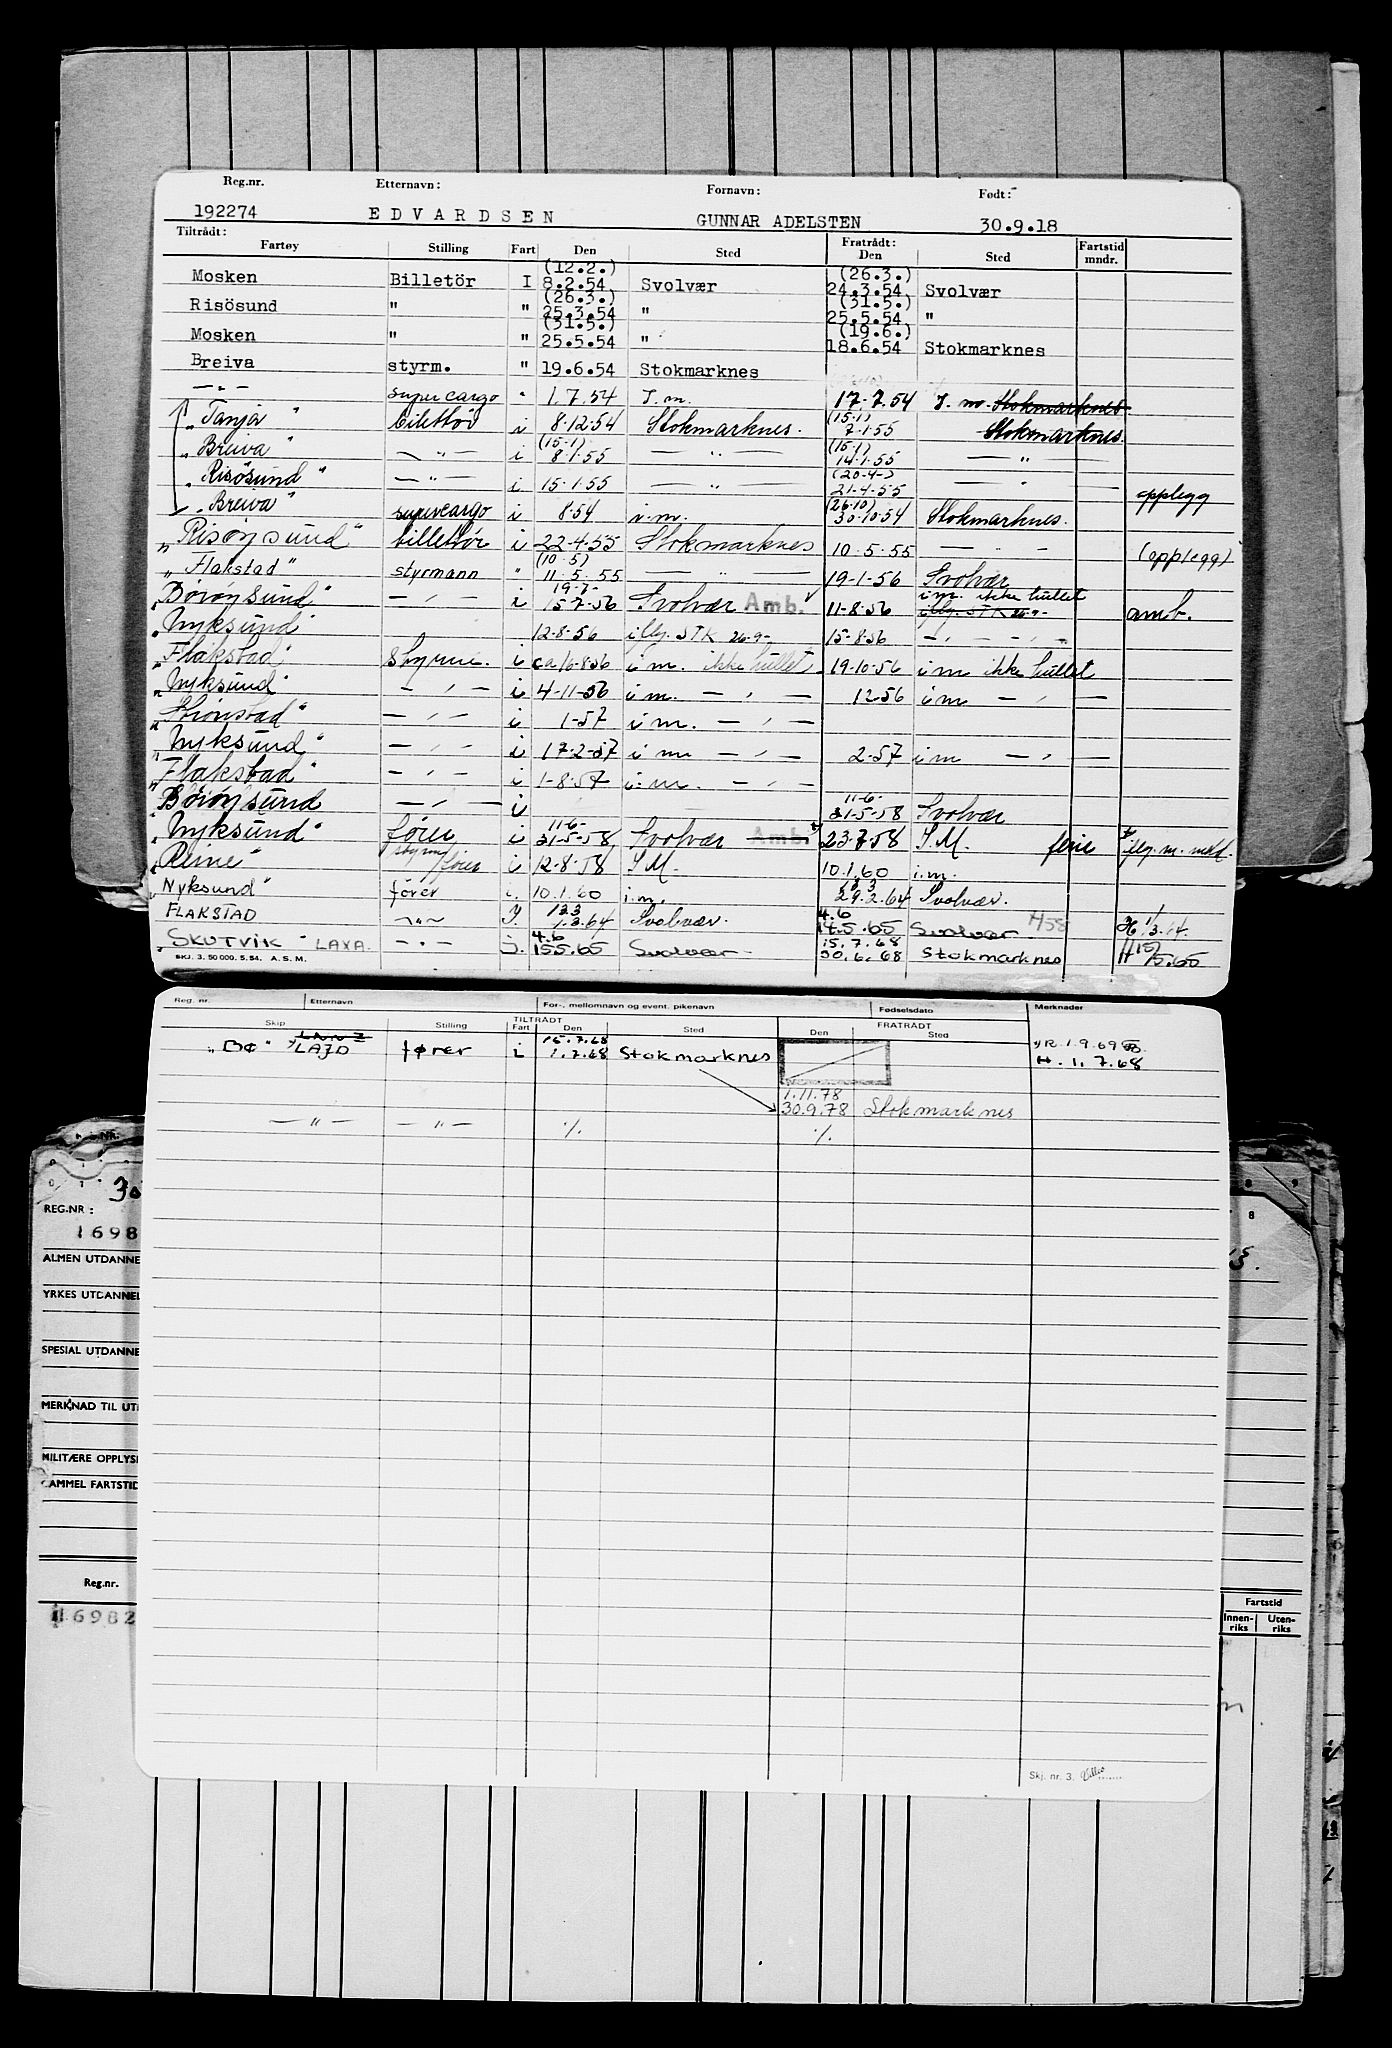 Reg.nr. Etternavn: Fornavn: Født:
192274 EDVARDSEN GUNNAR ADELSTEN 30.9.18
Tiltrådt: Fratrådt:
Fartøy Stilling Fart Den Sted Den Sted Fartstid mndr.
(12.2.) (26.3.)
Mosken Billetör I 8.2.54 Svolvær 24.3.54 Svolvær
(26.3.) (31.5.)
Risösund " " 25.3.54 " 25.5.54 "
(31.5.) (19.6.)
Mosken " " 25.5.54 " 18.6.54 Stokmarknes
Breiva styrm. " 19.6.54 Stokmarknes
— " — supercargo " 1.7.54 I.m. 17.7.54 I.m. Stokmarknes
(15.1)
"Tanja" bilettör i 8.12.54 Stokmarknes. 7.1.55 Stokmarknes.
(15.1) (15.1)
"Breiva" — " — i 8.1.55 — " — 14.1.55 — " —
(20.4-)
"Risösund" — " — i 15.1.55 — " — 21.4.55 — " — opplegg
(26.10)
"Breiva" supercargo i 8.54 i.m. 30.10.54 Stokmarknes.
"Risøysund" billettör i 22.4.55 Stokmarknes 10.5.55 — " — (opplegg)
(10.5)
"Flakstad" styrmann " 11.5.55 — " — 19-1-56 Svolvær
19-7- i.m. ikke hullet
"Börøysund" — " — i 15.7.56 Svolvær Amb. 11-8-56 illg. STK 26.9- amb.
"Nyksund" 12-8-56 illg. STK 26.9- 15-8-56 — " — " —
"Flakstad" Styrm. i ca 16-8-56 i m. ikke hullet 19-10-56 i m ikke hullet
"Nyksund" — " — i 4-11-56 i m. — " — 12-56 i m — " —
— " — i 1-57 i m. — " —
"Nyksund" — " — i 17-2-57 i m — " — 2-57 i m — " —
"Flakstad" — " — i 1-8-57 i.m. — " —
11-6-
"Börøysund — " — i 31-5-58 Svolvær
11-6-
"Nyksund" fører i 31-5-58 Svolvær Amb. 23-7-58 I.M. ferie illg. m. mld.
"Reine" styrm/fører i 12-8-58 I.M. 10.1.60 i.m.
"Nyksund" fører i. 10.1.60 i.m. 29.2.64 Svolvær.
4.6
FLAKSTAD — " — I. 1.3.64 Svolvær. 14.5.65 Svolvær H 1/3.64.
4.6 15.7.68
"SKUTVIK" LAXA. — " — I. 15.5.65 Svolvær 30.6.68 Stokmarknes H 15/5.65
SKJ. 3. 50 000. 5.54. A.S.M.
Reg. nr. Etternavn For-, mellomnavn og event. pikenavn Fødselsdato Merknader
TILTRÅDT FRATRÅDT
Skip Stilling Fart Den Sted Den Sted
15.7.68 R. 1.9.69
"BØ" LAJD fører i 1.7.68 Stokmarknes H. 1.7.68
1.11.78
30.9.78 Stokmarknes
— " — — " — ·/. ·/.
Skj. nr. 3.
REG.NR:
1698
ALMEN UTDANNE
YRKES UTDANNEL
SPESIAL UTDANNE
MERKNAD TIL UT
MILITÆRE OPPLYS
GAMMEL FARTSTID
Reg.nr.
16982
Fartstid
Innen-riks Uten-riks